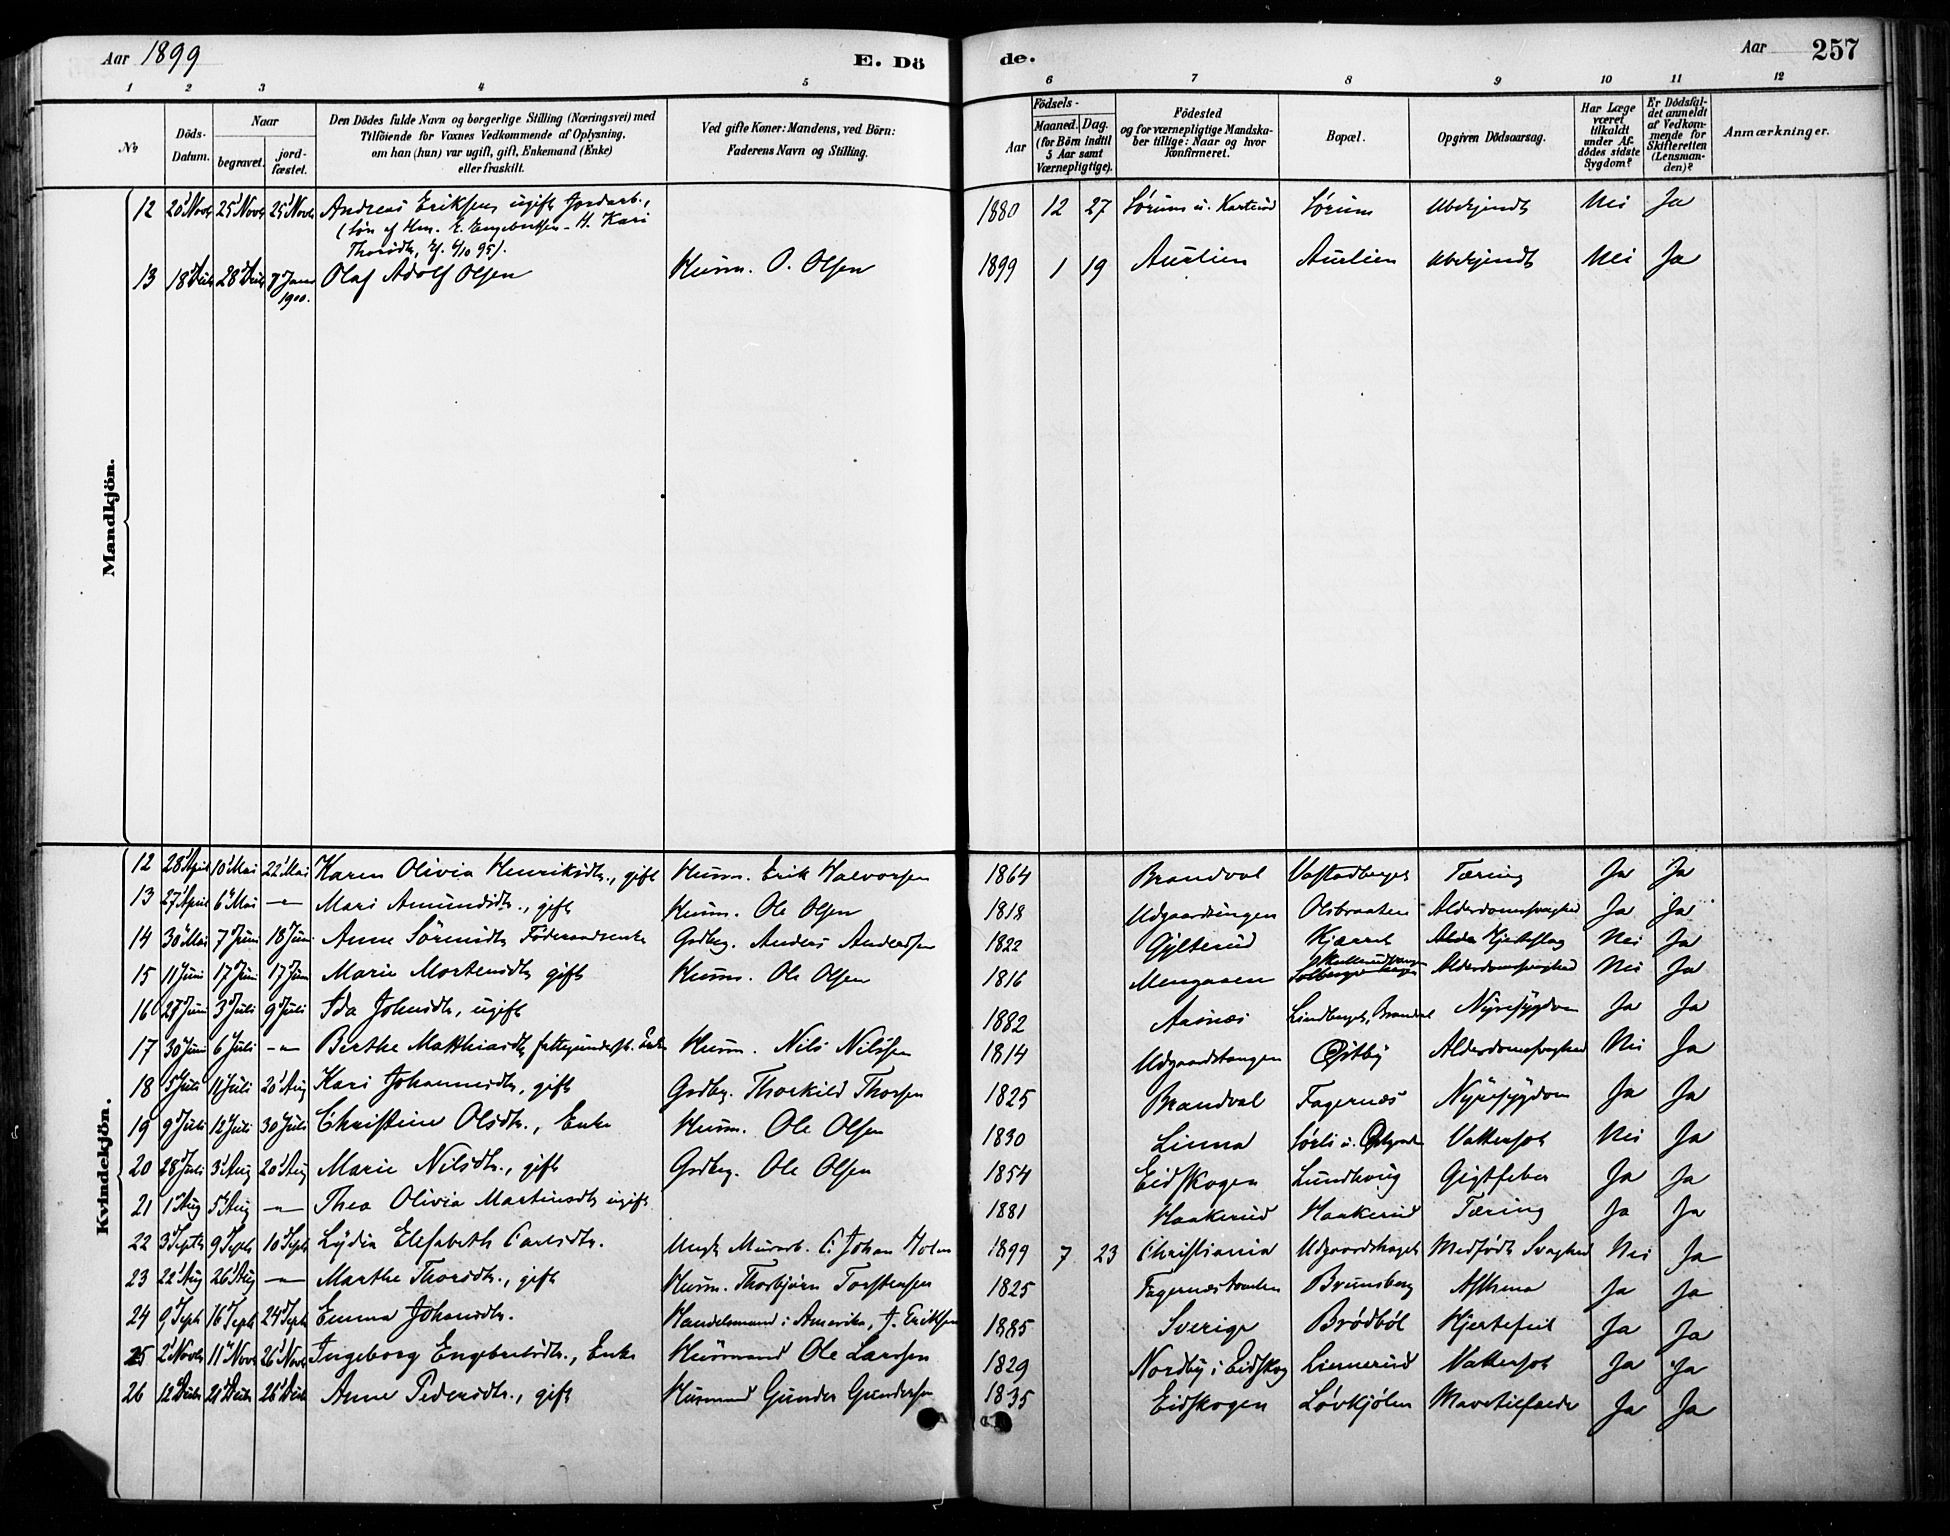 Aar 1899 E. Dö de. Aar 257
1 2 3 4 5 6 7 8 9 10 11 12
No Döds-Datum. Naar begravet. jord-fæstet. Den Dödes fulde Navn og borgerlige Stilling (Næringsvei) med Tilföiende for Voxnes Vedkommende af Oplysning, om han (hun) var ugift, gift, Enkemand (Enke) eller fraskilt. Ved gifte Koner: Mandens, ved Börn: Faderens Navn og Stilling. Födsels- Aar Maaned. Dag. (for Börn indtil 5 Aar samt Værnepligtige). Födested og for værnepligtige Mandskaber tillige: Naar og hvor konfirmeret. Bopæl. Opgiven Dödsaarsag. Har Læge været tilkaldt under Afdödes sidste Sygdom? Er Dödsfaldet anmeldt af Vedkommende for Skifteretten (Lensmanden)? Anmærkninger.
Mandkjön.
12 20 Novb 25 Novb 25 Novb Andreas Eriksen ugift Jordarb., 1880 12 27 Sørum u. Karterud Sørum Ubekjendt Nei Ja
(Søn af Hm. E. Engebretsen - H. Kari
Thorsdtr, 95).
13 18 Decb 28 Decb 7 Janr 1900. Olaf Adolf Olsen Husm. O. Olsen 1899 1 19 Aurlien Aurlien Ubekjendt Nei Ja
Kvindekjön.
12 28 April 10 Mai 22 Mai Karen Olivia Henriksdtr., gift Husm. Erik Halvorsen 1864 Brandval Vastadberget Tæring Ja Ja
13 27 April 6 Mai -"- Mari Amundsdtr., gift Husm. Ole Olsen 1818 Udgaardsengen Olsbraaten Alderdomssvaghed Ja Ja
14 30 Mai 7 Juni 18 Juni Anne Sörensdtr Föderaadsenke Gdbrg. Anders Andersen 1822 Gjelterud Kjærret Hjerteslag Nei Ja
15 11 Juni 17 Juni 17 Juni Marie Mortensdtr gift Husm. Ole Olsen 1816 Mengaaen Alderdomssvaghed Nei Ja
16 27 Juni 3 Juli 9 Juli Ida Johnsdtr, ugift 1882 Aasnæs Lindberget, Brandval Nyresygdom Ja Ja
17 30 Juni 6 Juli -"- Berthe Matthiasdtr fattigunderst. Enke Husm. Nils Nilssen 1814 Udgaardstangen Østby Alderdomssvaghed Nei Ja
18 5 Juli 11 Juli 20 Aug Kari Johannesdtr, gift Gdbrg. Thorkild Thorsen 1825 Brandval Fagernæs Nyresygdom Ja Ja
19 9 Juli 12 Juli 30 Juli Christine Olsdtr., Enke Husm. Ole Olsen 1830 Linna Sørli u. Vattersot Nei Ja
20 28 Juli 3 Aug 20 Aug Marie Nilsdtr., gift Gdbrg. Ole Olsen 1854 Eidskogen Lundhoug Gigtfeber Ja Ja
21 1 Aug 5 Aug -"- Thea Olivia Martinsdtr ugift 1881 Haakerud Haakerud Tæring Ja Ja
22 3 Septb 9 Septb 10 Septb Lydia Elisabeth Carlsdtr. Ungk. Murarb. C. Johan Holm 1899 7 23 Christiania Udgaardshaget Medfödt Svaghed Nei Ja
23 22 Aug 26 Aug -"- Marthe Thorsdtr., gift Husm. Thorbjørn Torstensen 1825 Fagernæs Brunsberg Asthma Ja Ja
24 9 Septb 16 Septb 24 Septb Emma Johansdtr. Handelsmand i Amerika, J. Erikssen 1885 Sverige Brødbøl Hjertefeil Ja Ja
25 2 Novb 11 Novb 26 Novb Ingeborg Engebretsdtr., Enke Husmand Ole Larssen 1829 Nordby i Eidskog Liernerud Vattersot Ja Ja
26 12 Decb 21 Decb 26 Decb Anne Pedersdtr., gift Husmand Gunder Gundersen 1835 Eidskogen Løvhjølen Mavetilfælde Ja Ja